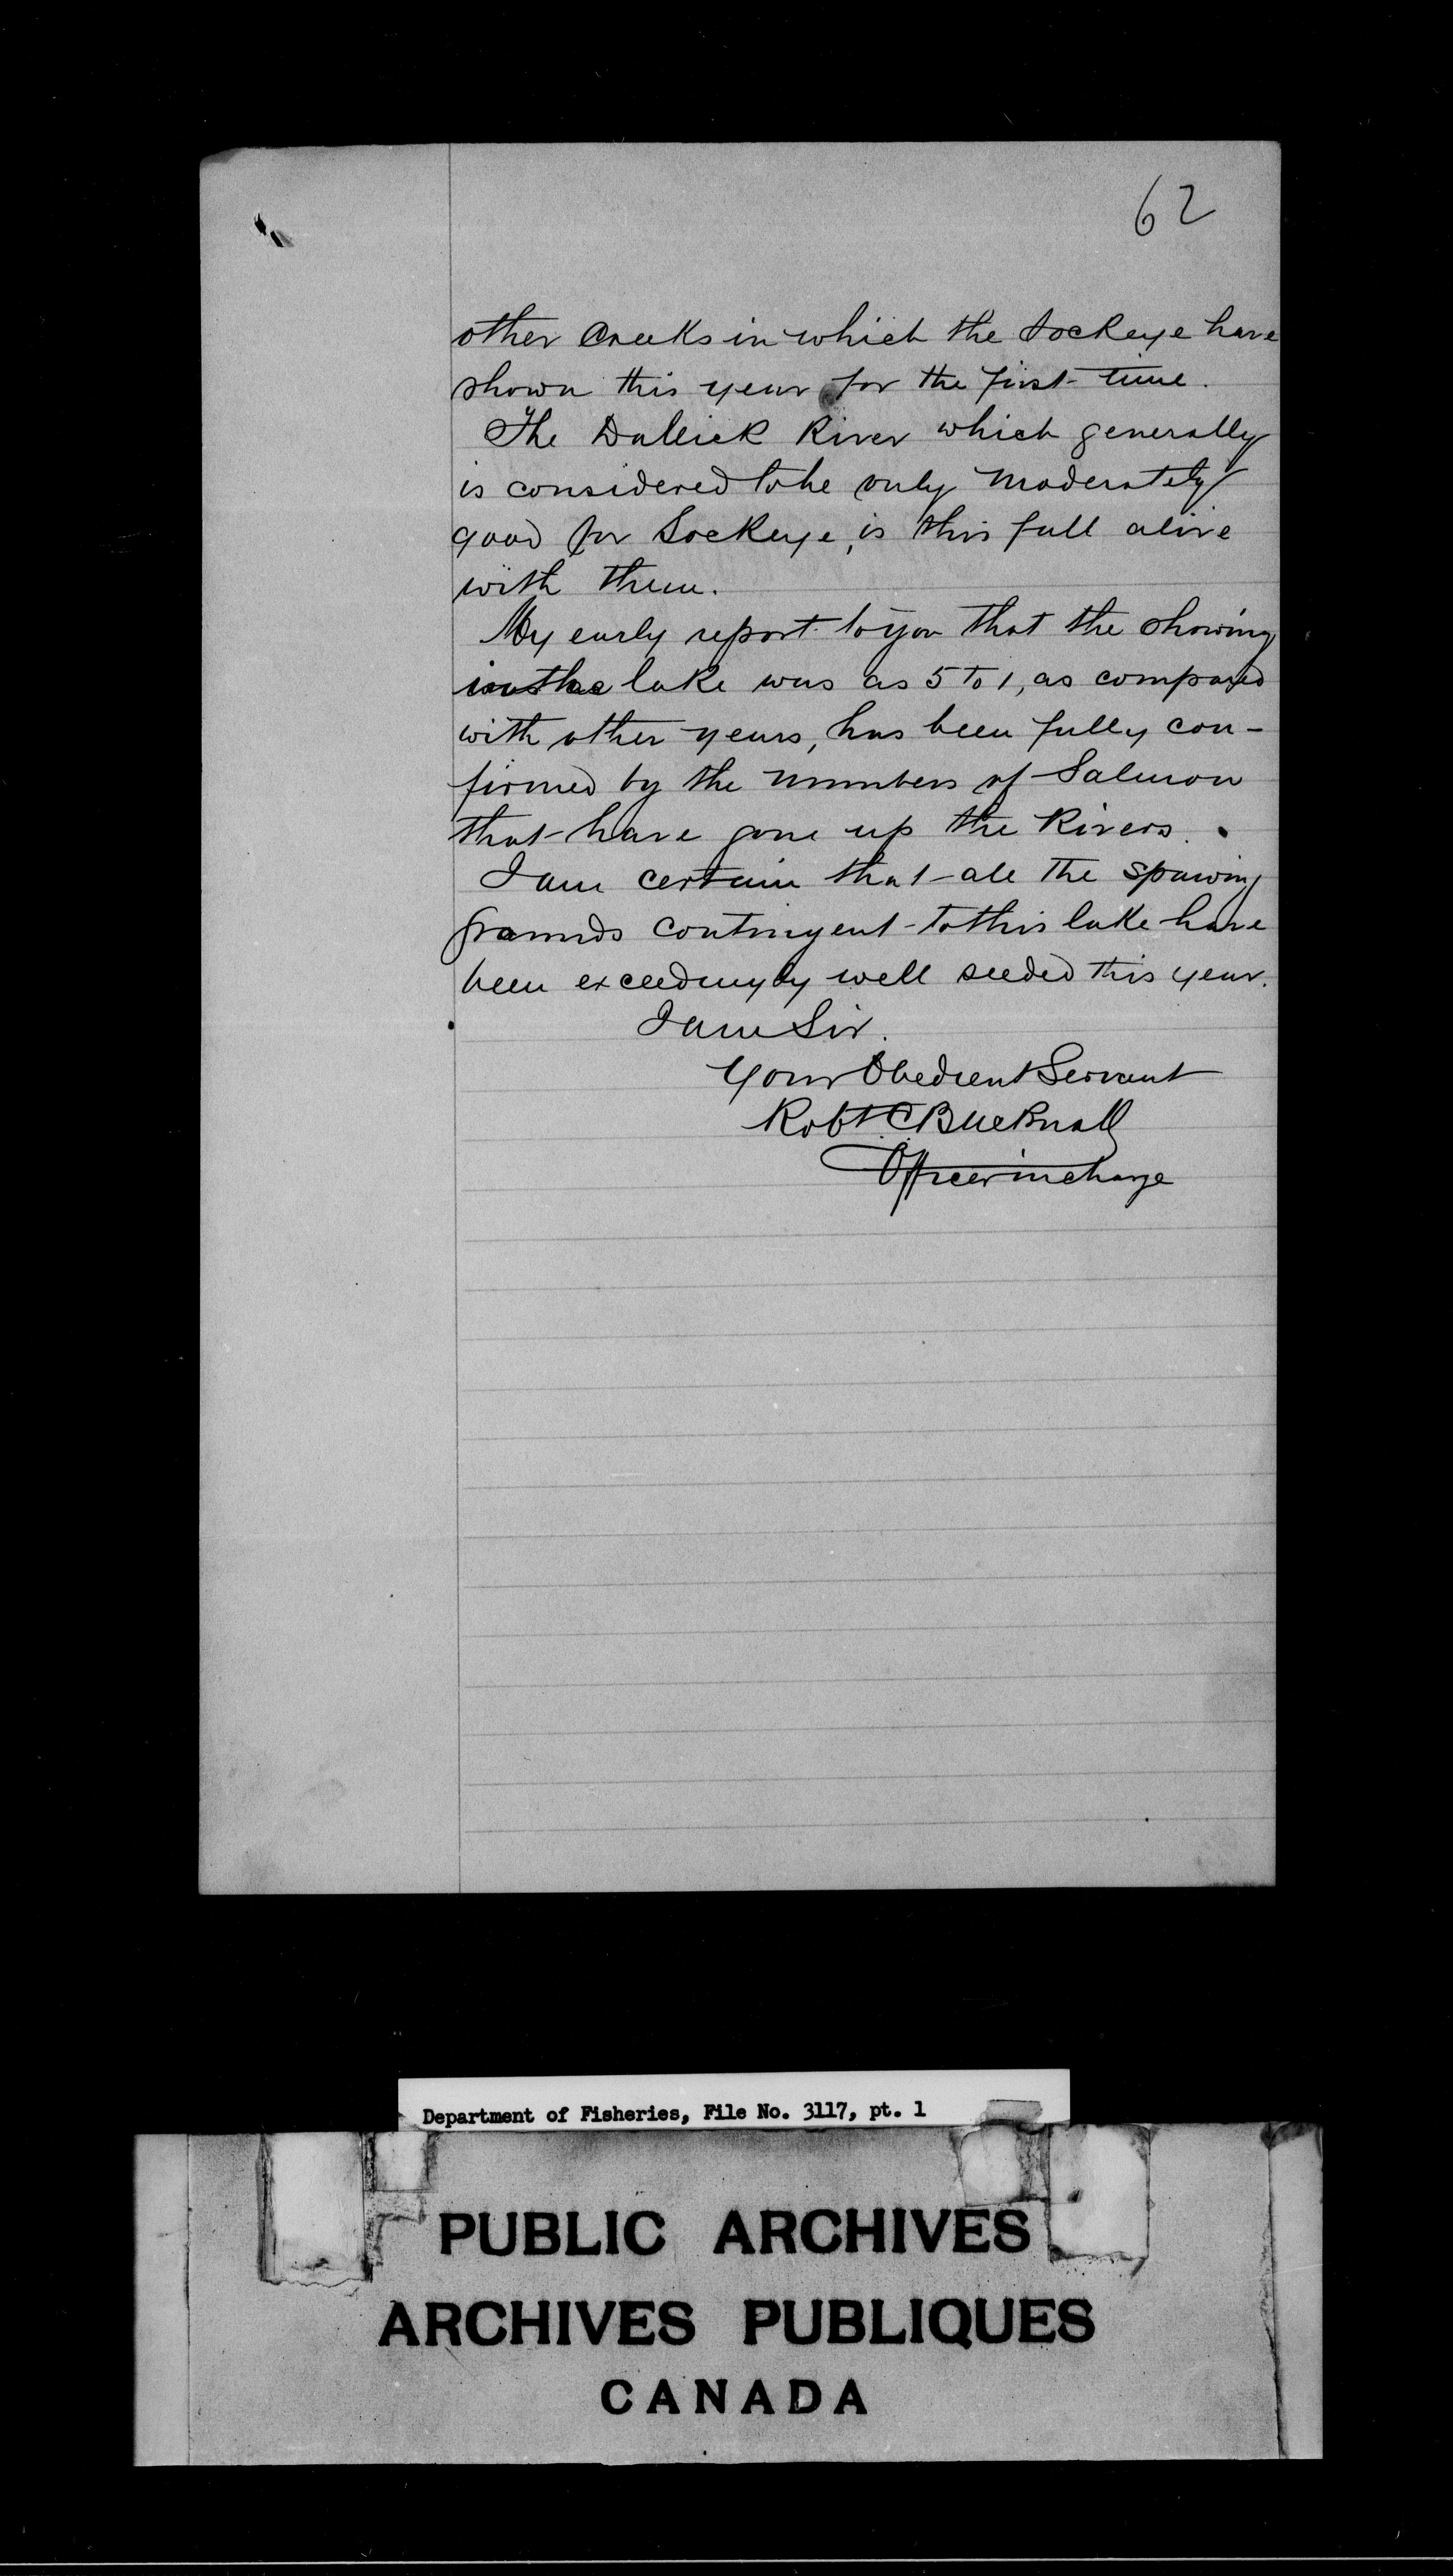 62
other Creeks in which the Sockeye have
shown this year for the first time.
The Dallick River which generally
is considered to be only moderately
good for Sockeye, is this fall alive
with them.
My early report to you that the showing
in the lake was as 5 to 1, as compared
with other years, has been fully con-
firmed by the numbers of Salmon
that have gone up the Rivers.
I am certain that all the spawing
grounds contingent to this lake have
been exceedingly well seeded this year.
I am Sir.
Your Obedient Servant
Robt C Bucknall
Officer in charge
Department of Fisheries, File No. 3117, pt. 1
PUBLIC ARCHIVES
ARCHIVES PUBLIQUES
CANADA